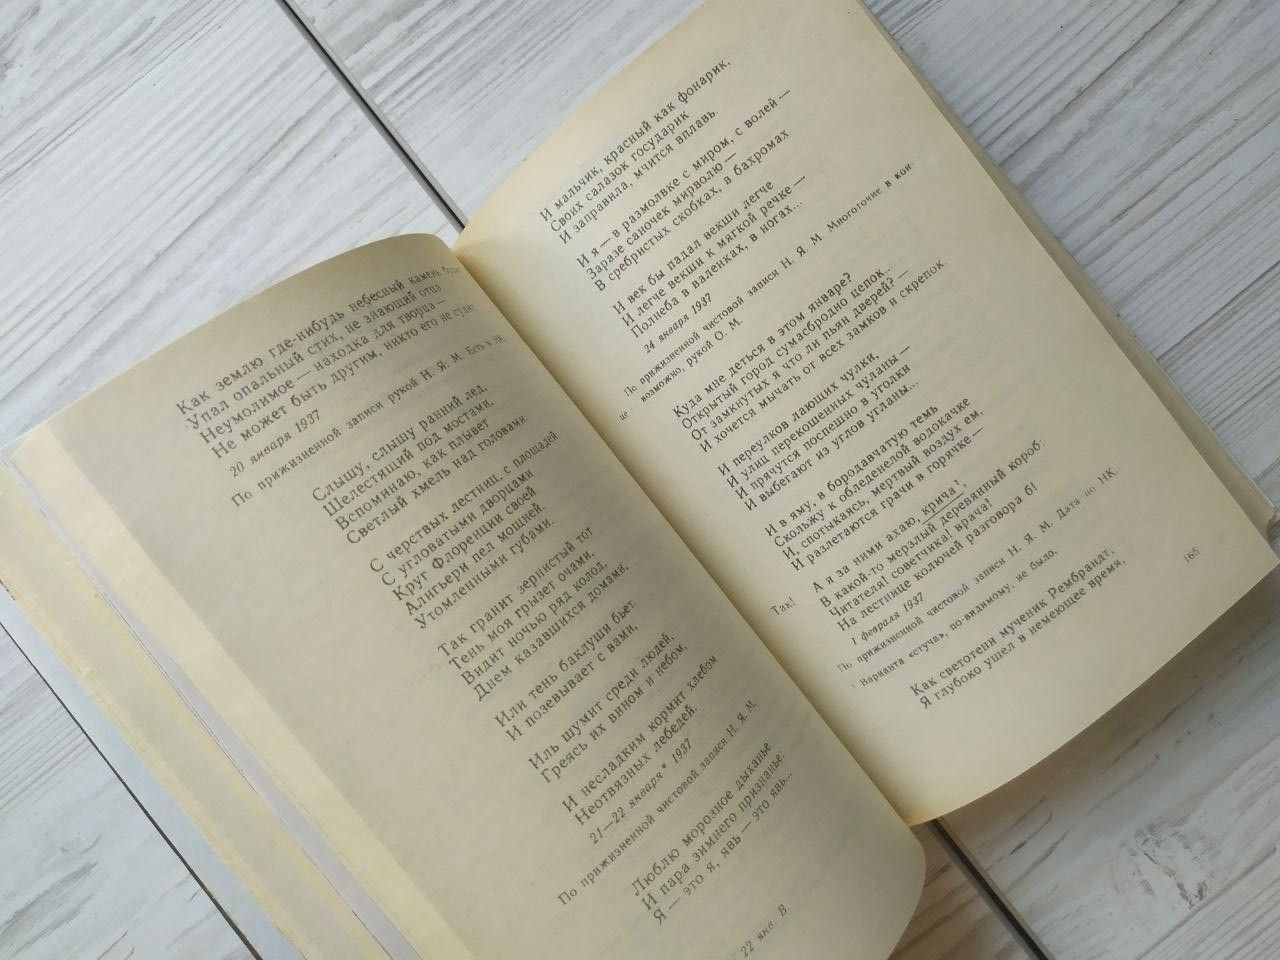 Как землю где-нибудь небесный камень будит
Упал опальный стих, не знающий отца
Неумолимое — находка для творца —
Не может быть другим, никто его не судит
20 января 1937
По прижизненной записи рукой Н. Я. М. Есть в НК
Слышу, слышу ранний лед,
Шелестящий под мостами,
Вспоминаю, как плывет
Светлый хмель над головами.
С черствых лестниц, с площадей
С угловатыми дворцами
Круг Флоренции своей
Алигьери пел мощней.
Утомленными губами.
Так гранит зернистый тот
Тень моя грызет очами,
Видит ночью ряд колод,
Днем казавшихся домами,
Или тень баклуши бьет.
И позевывает с вами,
Иль шумит среди людей,
Греясь их вином и небом,
И несладким кормит хлебом
Неотвязных лебедей.
21—22 января* 1937
По прижизненной чистовой записи Н. Я. М.
Люблю морозное дыханье
И пара зимнего признанье:
Я — это я, явь — это явь...
22 янв. В.
И мальчик, красный как фонарик,
Своих салазок государик
И заправила, мчится вплавь.
И я — в размолвке с миром, с волей —
Заразе саночек мирволю —
В сребристых скобках, в бахромах
И век бы падал векши легче
И легче векши к мягкой речке —
Полнеба в валенках, в ногах...
24 января 1937
По прижизненной чистовой записи Н. Я. М. Многоточие в кон-
це — возможно, рукой О. М.
Куда мне деться в этом январе?
Открытый город сумасбродно цепок...
От замкнутых я что ли пьян дверей? —
И хочется мычать от всех замков и скрепок.
И переулков лающих чулки,
И улиц перекошенных чуланы —
И прячутся поспешно в уголки
И выбегают из углов угланы...
И в яму, в бородавчатую темь
Скольжу к обледенелой водокачке
И, спотыкаясь, мертвый воздух ем,
И разлетаются грачи в горячке —
Так! А я за ними ахаю, крича¹,
В какой-то мерзлый деревянный короб:
Читателя! советчика! врача!
На лестнице колючей разговора б!
1 февраля 1937
По прижизненной чистовой записи Н. Я. М. Дата по НК.
¹ Варианта «стуча», по-видимому, не было.
Как светотени мученик Рембрандт,
Я глубоко ушел в немеющее время,
165